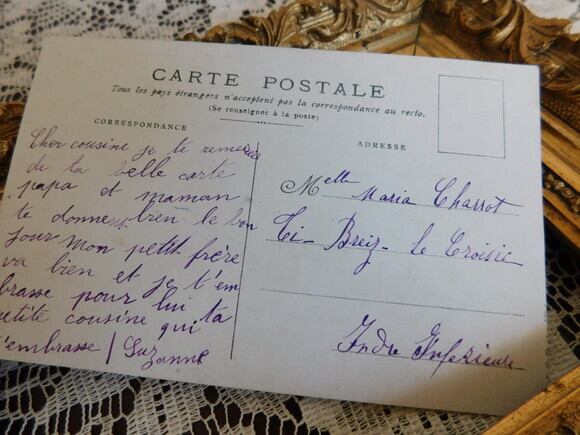 CARTE POSTALE
Tous les pays étrangers n'acceptent pas la correspondance au recto.
(Se renseigner à la poste)
CORRESPONDANCE
Cher cousine je te remercie
de ta belle carte
papa et maman
te donnent bien le bon
jour mon petit frère
va bien et je t'em
brasse pour lui ta
petite cousine qui
t'embrasse / Suz
anne
ADRESSE
Melle Maria Charrot
Ti-Breiz-le Croisic
Indre Inférieure